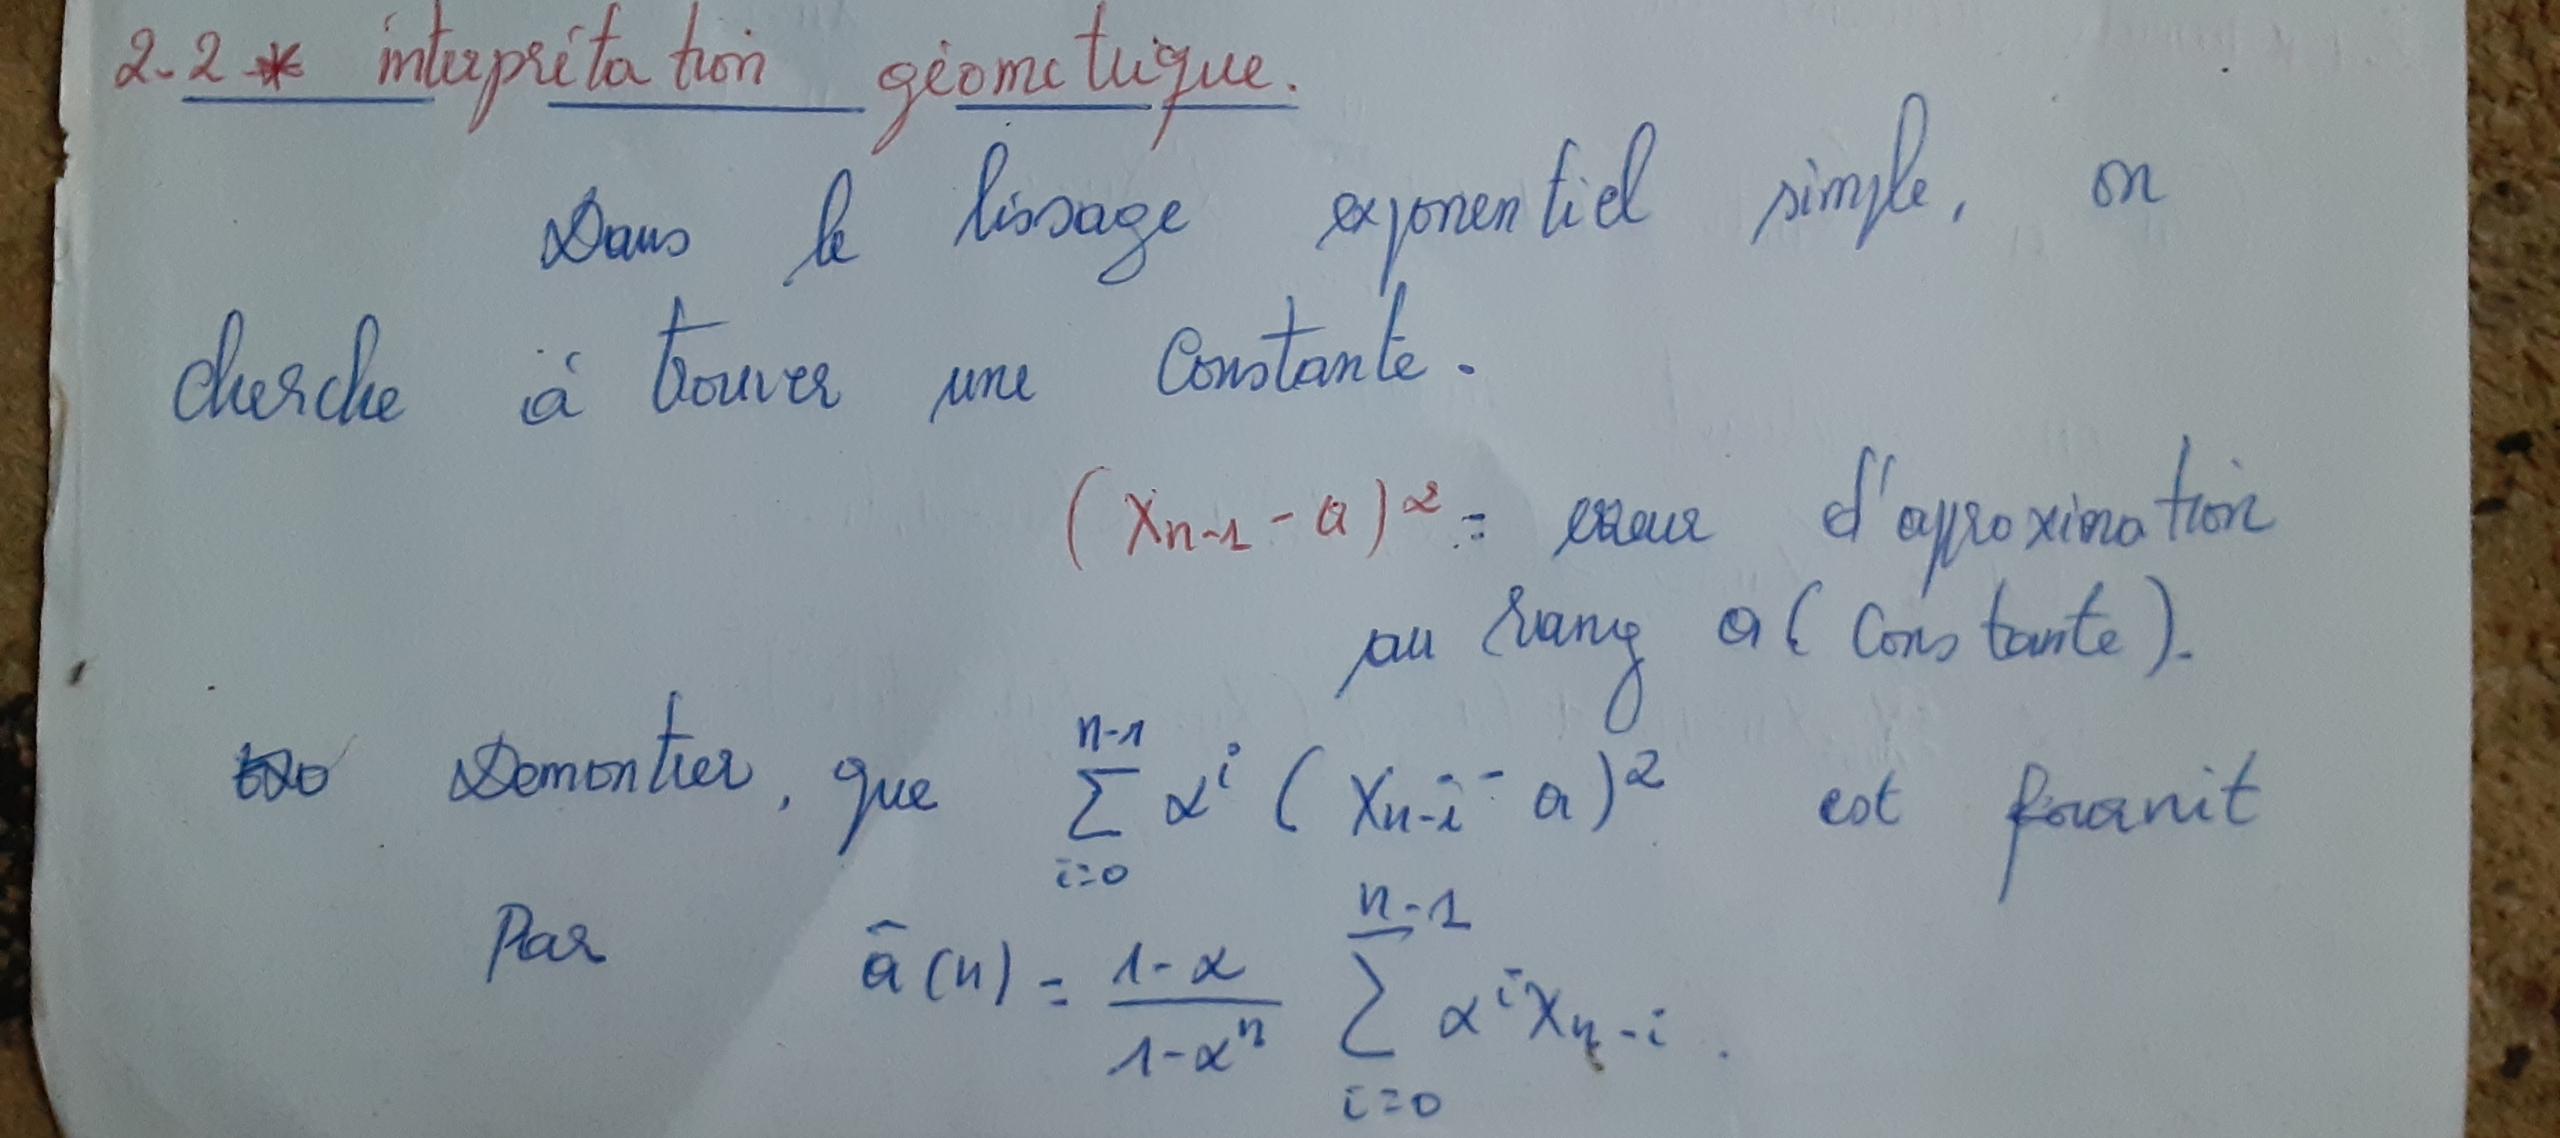 2-2 * interprétation géometrique.
Dans le lissage exponentiel simple, on
cherche à trouver une Constante.
(Xn-1 - a)² = erreur d'approximation
au rang a (Constante).
Demontrer, que \sum_{i=0}^{n-1} α^i (X_{n-i} - a)² est fournit
Par â(n) = \frac{1-α}{1-α^n} \sum_{i=0}^{n-1} α^i X_{n-i}.